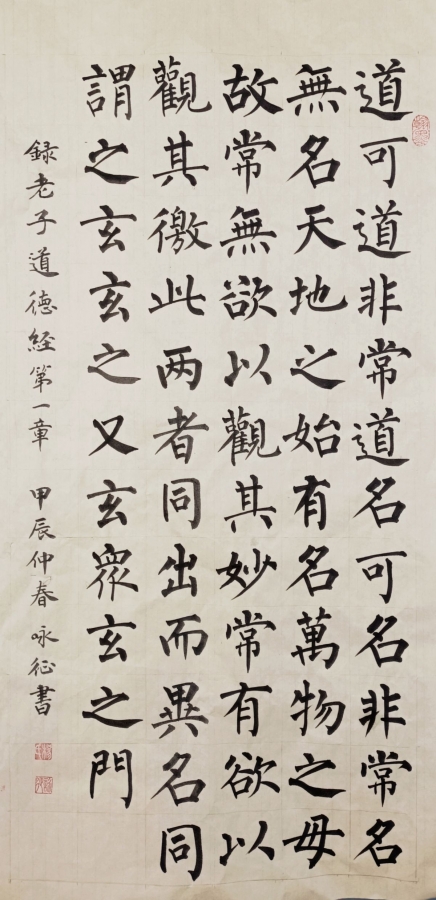 道可道非常道名可名非常名
無名天地之始有名萬物之母
故常無欲以觀其妙常有欲以
觀其徼此两者同出而異名同
謂之玄玄之又玄眾玄之門
録老子道德經第一章 甲辰仲春 咏征書